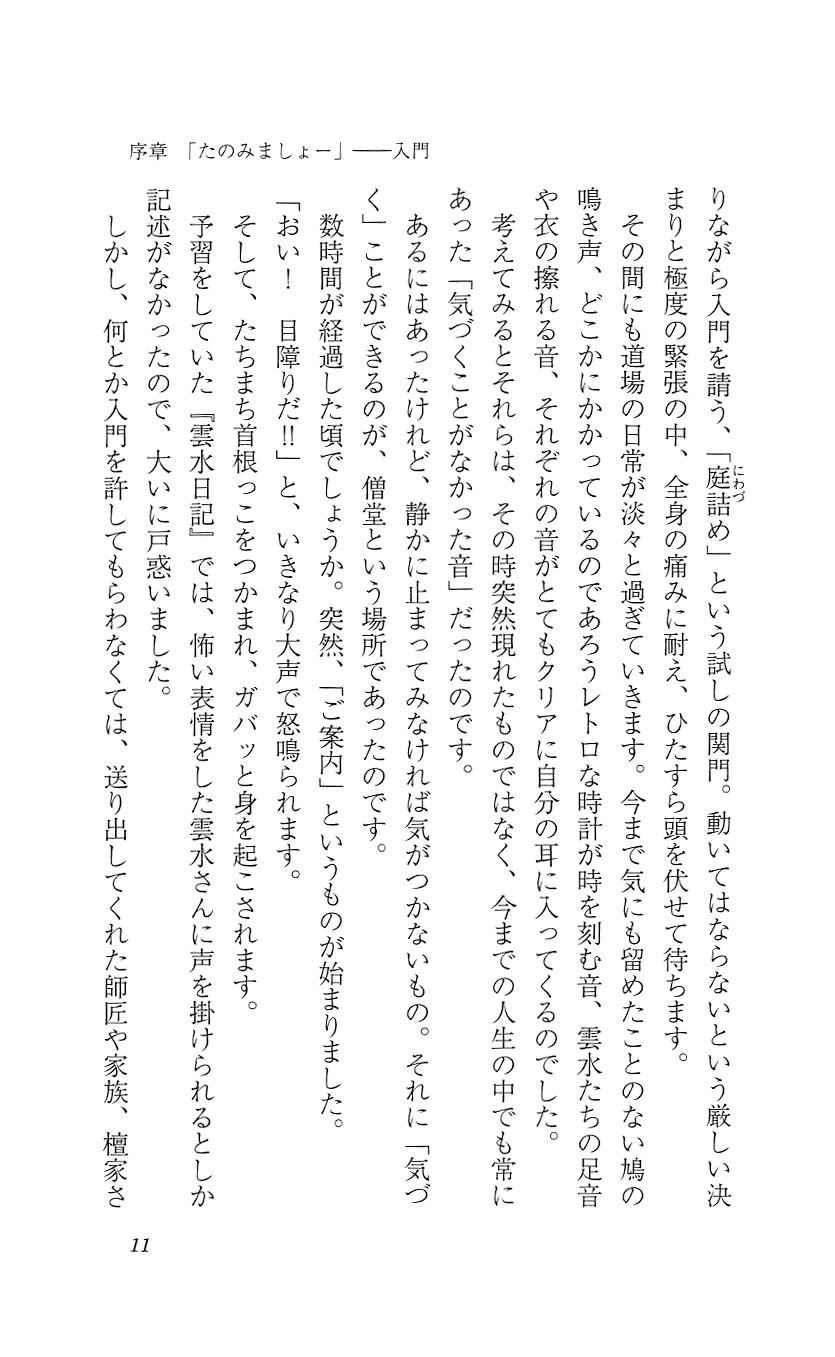 序章　「たのみましょー」――入門
りながら入門を請う、「庭詰め」という試しの関門。動いてはならないという厳しい決
にわづ
まりと極度の緊張の中、全身の痛みに耐え、ひたすら頭を伏せて待ちます。
　その間にも道場の日常が淡々と過ぎていきます。今まで気にも留めたことのない鳩の
鳴き声、どこかにかかっているのであろうレトロな時計が時を刻む音、雲水たちの足音
や衣の擦れる音、それぞれの音がとてもクリアに自分の耳に入ってくるのでした。
　考えてみるとそれらは、その時突然現れたものではなく、今までの人生の中でも常に
あった「気づくことがなかった音」だったのです。
　あるにはあったけれど、静かに止まってみなければ気がつかないもの。それに「気づ
く」ことができるのが、僧堂という場所であったのです。
　数時間が経過した頃でしょうか。突然、「ご案内」というものが始まりました。
「おい！　目障りだ‼」と、いきなり大声で怒鳴られます。
　そして、たちまち首根っこをつかまれ、ガバッと身を起こされます。
　予習をしていた『雲水日記』では、怖い表情をした雲水さんに声を掛けられるとしか
記述がなかったので、大いに戸惑いました。
　しかし、何とか入門を許してもらわなくては、送り出してくれた師匠や家族、檀家さ
11